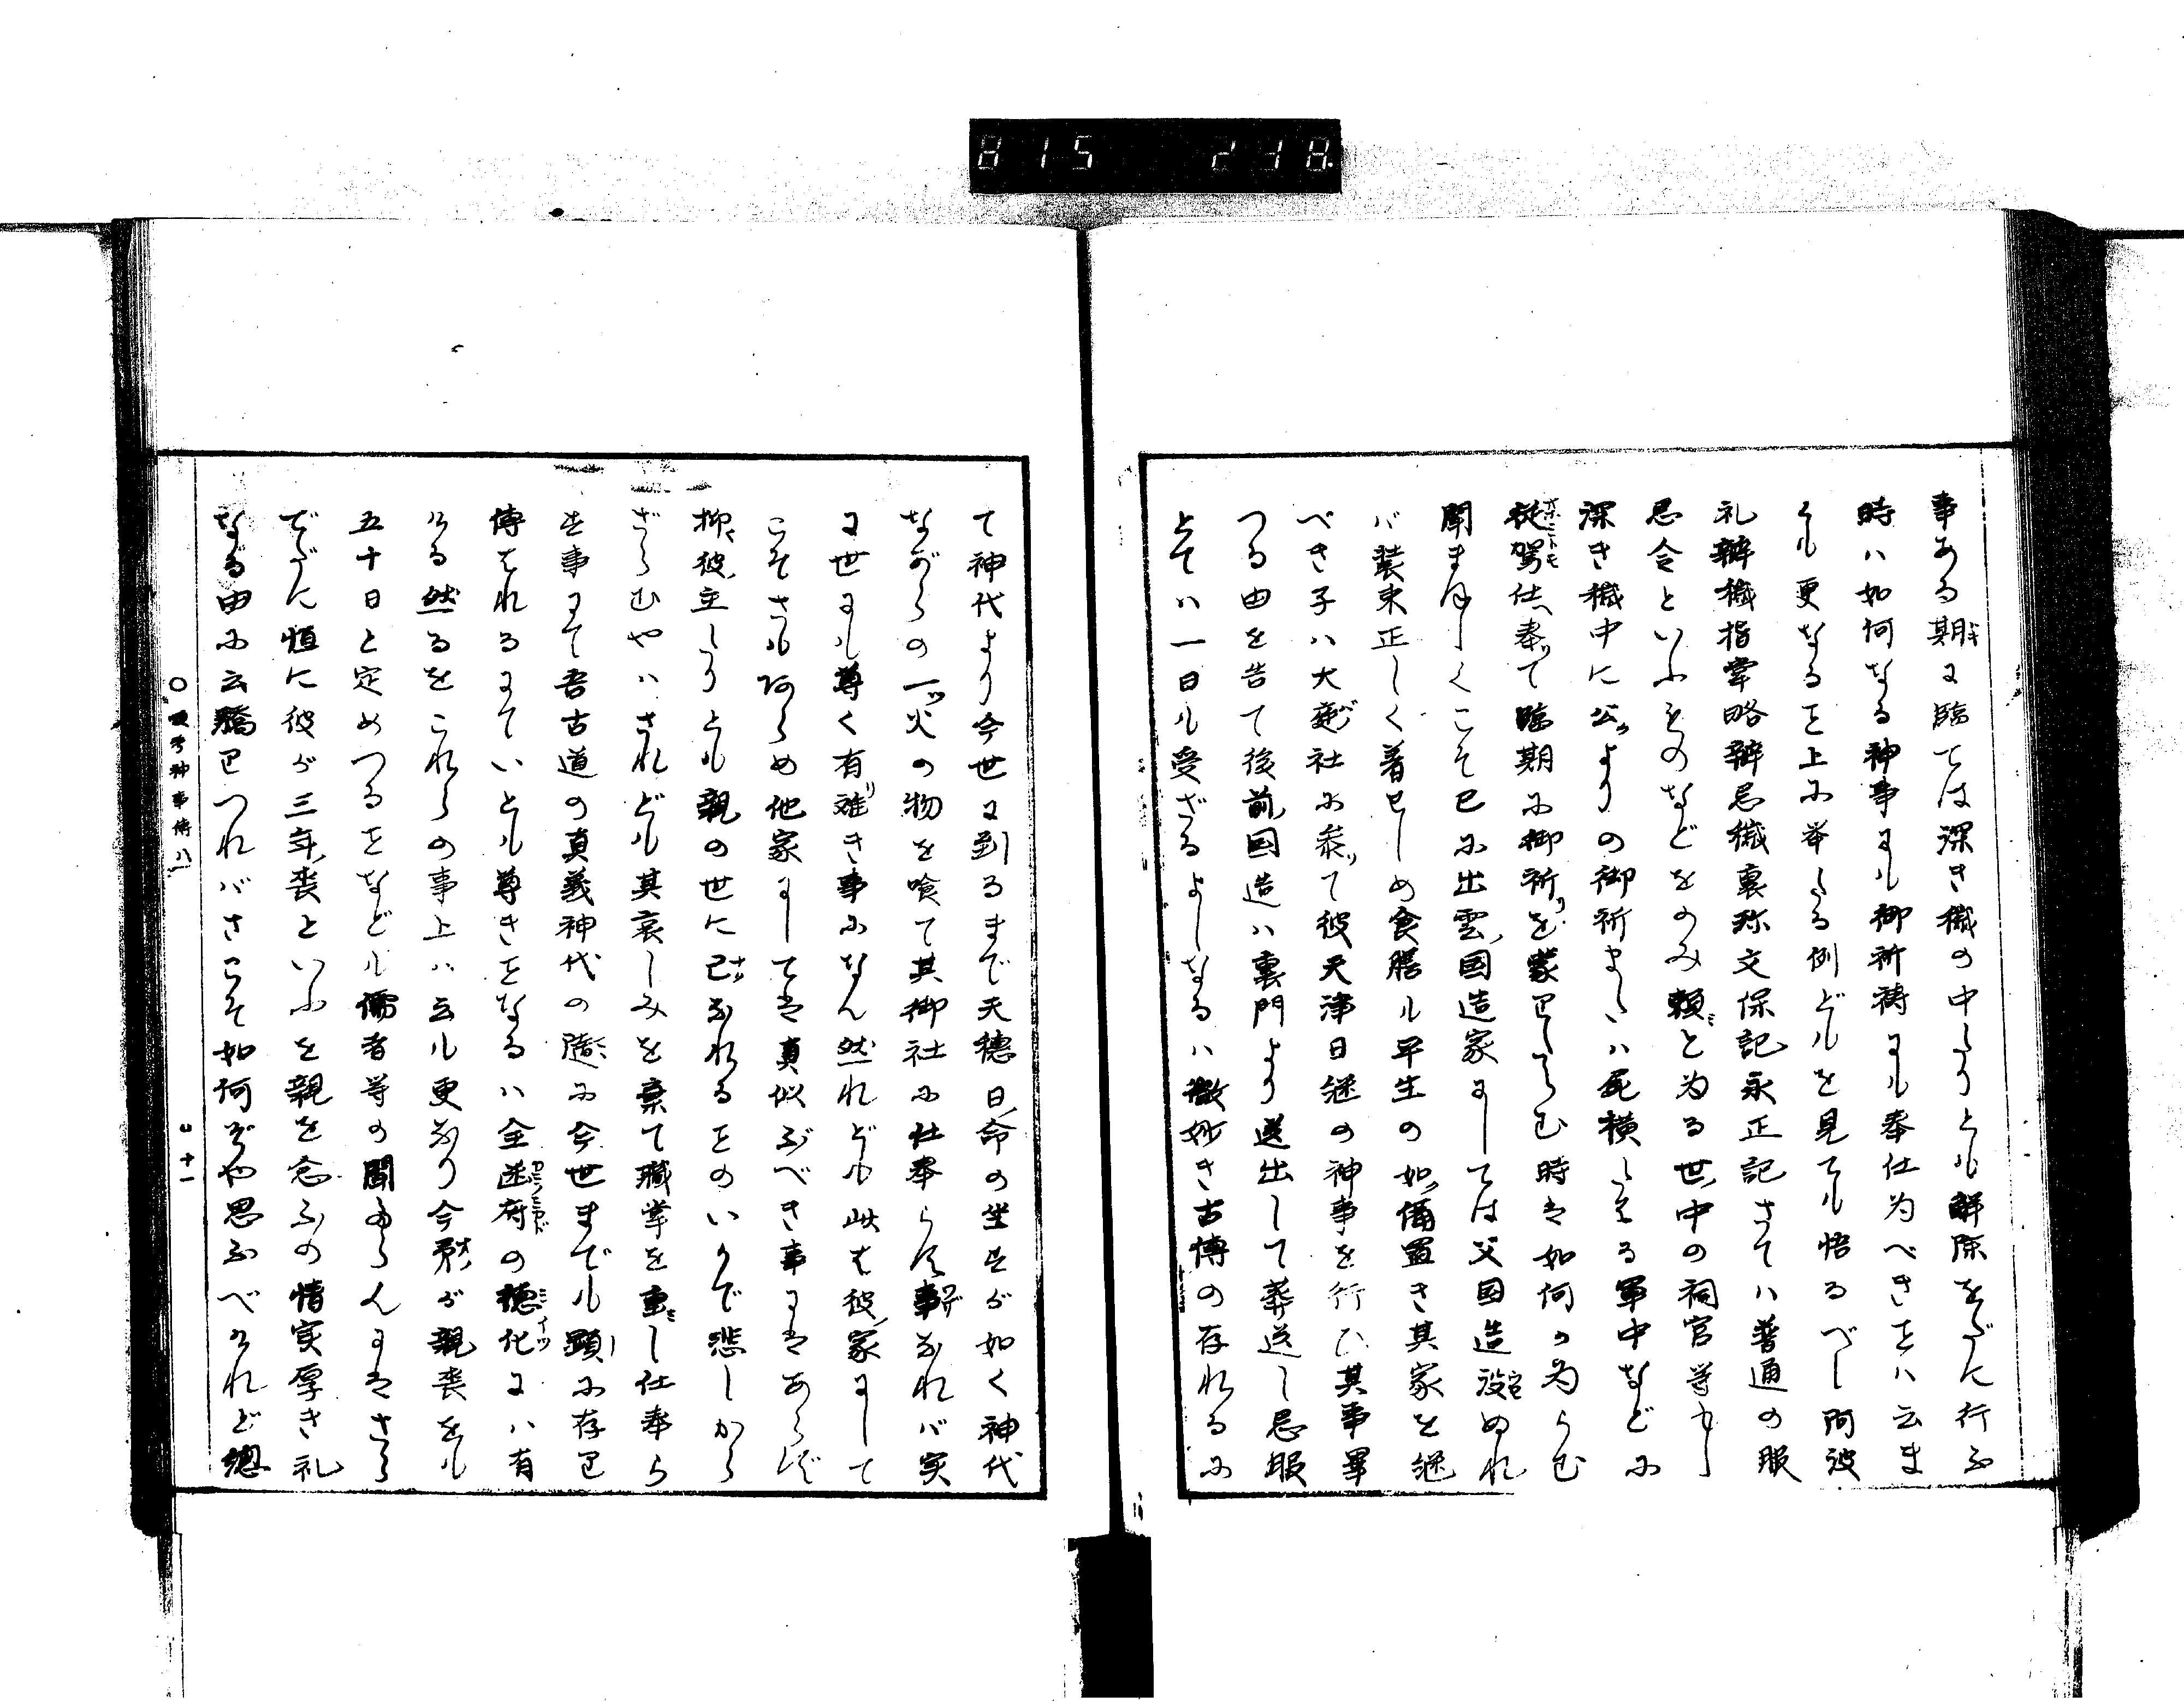 815 218
事ある期に臨ては深き穢の中たりとも解除をだに行ふ
時ハ如何なる神事にも御祈祷にも奉仕為べきをハ云ま
くも更なるを上に挙たる例どもを見ても悟るべし阿波
礼辮穢指掌略辮忌穢裏珎文保記永正記さてハ普通の服
忌令といふものなどをのみ頼と為る世中の祠官等もし
深き穢中に公よりの御祈または死横たはる軍中などに
従駕仕奉て臨期に御祈を蒙りたらむ時は如何か為らむ
聞まほしくこそ已に出雲国造家にしては父国造没ぬれ
バ装束正しく着せしめ食膳も平生の如備置き其家を継
べき子ハ大庭社に参て彼天津日継の神事を行ひ其事畢
つる由を告て後前国造ハ裏門より送出して葬送し忌服
とてハ一日も受ざるよしなるハ微妙き古傳の存れるに
て神代より今世に到るまで天穂日命の坐すが如く神代
ながらの一ツ火の物を喰て其御社に仕奉らす事なれバ実
に世にも尊く有難き事になん然れども此は彼家にして
こそさもあらめ他家にしては真似ぶべき事にはあらず
抑彼主たりとも親の世に已なれるをのいかで悲しから
ざらむやハされども其哀しみを棄て職掌を重し仕奉ら
す事にて吾古道の真義神代の隨に今世までも顕に存り
傳はれるにていとも尊きをなるハ全幽府の穂化にハ有
ける然るをこれらの事上ハ云も更なり今我が親喪をも
五十日と定めつるをなども儒者等の聞たらんにはさら
でだに恒に彼が三年喪といふを親を念ふの情実厚き礼
なる由に云驕りつればさこそ如何ぞや思ふべけれど總
十一